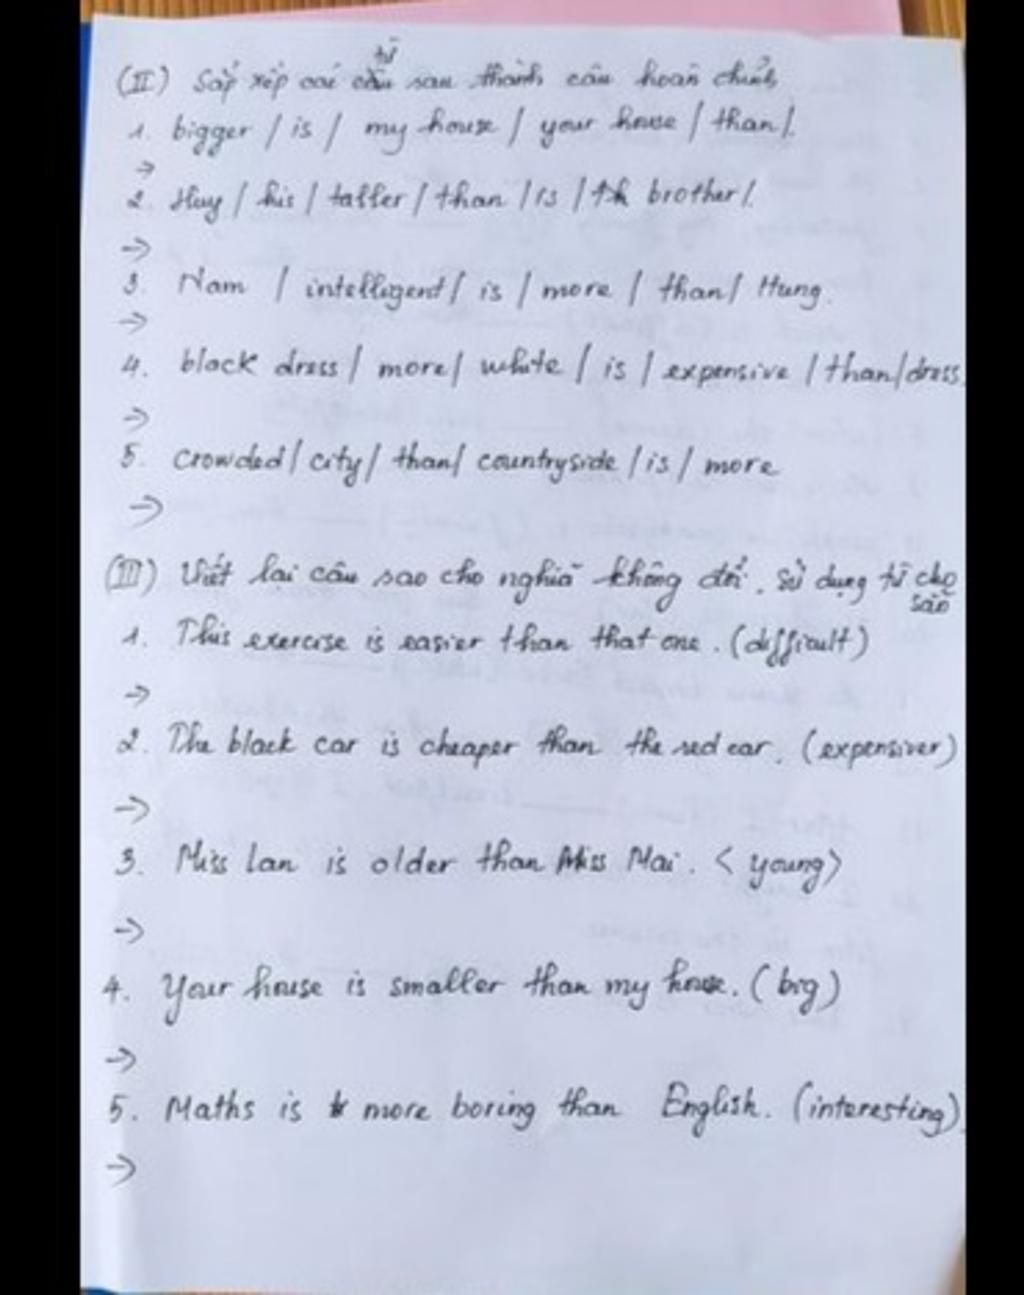 từ
(II) Sắp xếp các câu sau thành câu hoàn chỉnh
1. bigger / is / my house / your house / than /.
→
2. Huy / his / taller / than / is / brother /.
→
3. Nam / intelligent / is / more / than / Hung.
→
4. black dress / more / white / is / expensive / than / dress.
→
5. crowded / city / than / countryside / is / more
→
(III) Viết lai câu sao cho nghĩa không đổi. sử dụng từ cho
sẵn
1. This exercise is easier than that one. (difficult)
→
2. The black car is cheaper than the red car. (expensiver)
→
3. Miss Lan is older than Miss Mai. < young >
→
4. Your house is smaller than my house. (big)
→
5. Maths is more boring than English. (interesting).
→